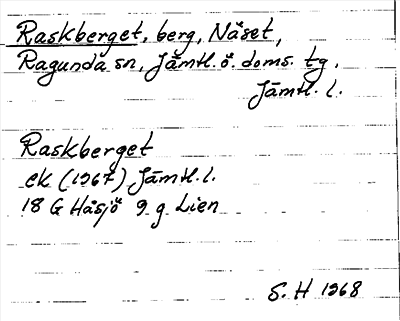 Raskberget, berg, Näset,
Ragunda sn, Jämtl. ö. doms. tg.
Jämtl. l.
Raskberget
ek (1967) Jämtl. l.
18 G Håsjö 9 g Lien
S. H 1968